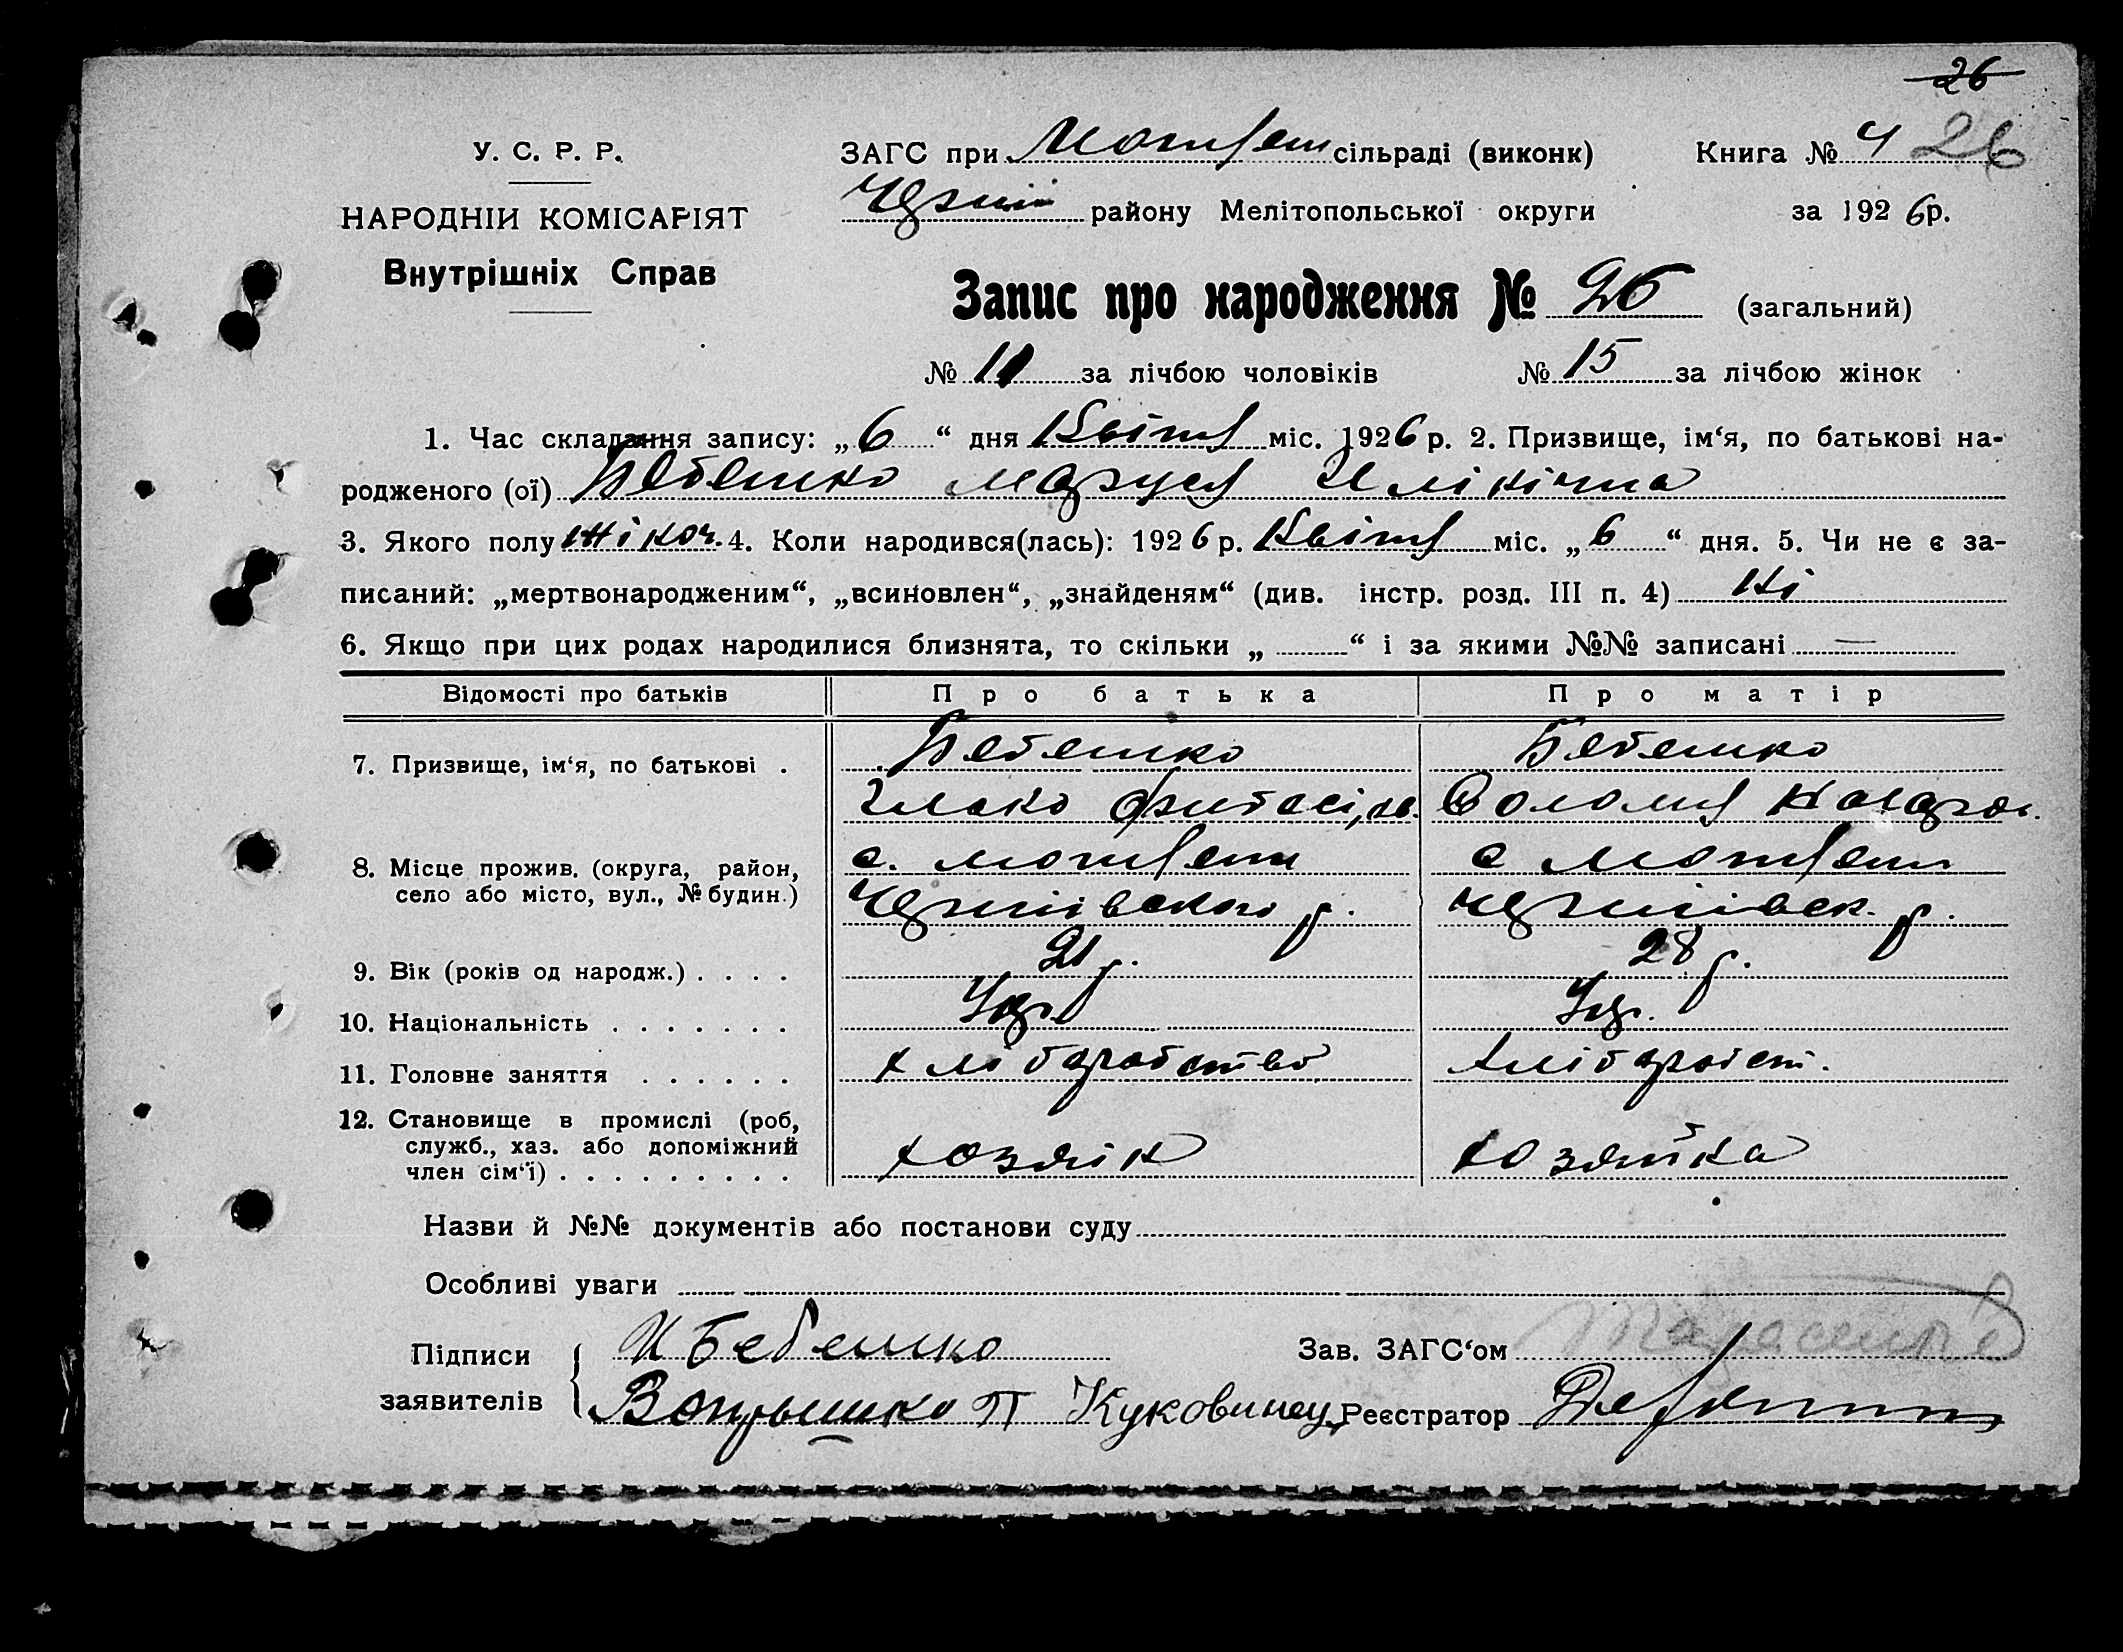 26
У. С. Р. Р. ЗАГС при сільраді (виконк) Книга № 4 26
НАРОДНІЙ КОМІСАРІЯТ району Мелітопольської округи за 1926р.
Внутрішніх Справ
Запис про народження № 26 (загальний)
№ 11 за лічбою чоловіків № 15 за лічбою жінок
1. Час складання запису: „6“ дня Квітня міс. 1926 р. 2. Призвище, ім‘я, по батькові на-
родженого (ої) Бебешко Маруся
3. Якого полу жіноч. 4. Коли народився(лась): 1926 р. Квітня міс. „6“ дня. 5. Чи не є за-
писаний: „мертвонародженим“, „всиновлен“, „знайденям“ (див. інстр. розд. III п. 4) Ні
6. Якщо при цих родах народилися близнята, то скільки „ “ і за якими №№ записані —
Відомості про батьків Про батька Про матір
7. Призвище, ім‘я, по батькові . Бебешко Бебешко
8. Місце прожив. (округа, район, с. с
село або місто, вул., № будин.) Чернигівского р. Чернигівск. р.
9. Вік (років од народж.) . . . . 21 р. 28 р.
10. Національність . . . . . . . Укр. Укр.
11. Головне заняття . . . . . . хліборобство хлібороbст.
12. Становище в промислі (роб,
служб., хаз. або допоміжний
член сім‘ї) . . . . . . . . . хозяін хозяйка
Назви й №№ документів або постанови суду
Особливі уваги
Підписи И Бебешко Зав. ЗАГС‘ом Тарасенко
заявителів П Куковинец Реєстратор